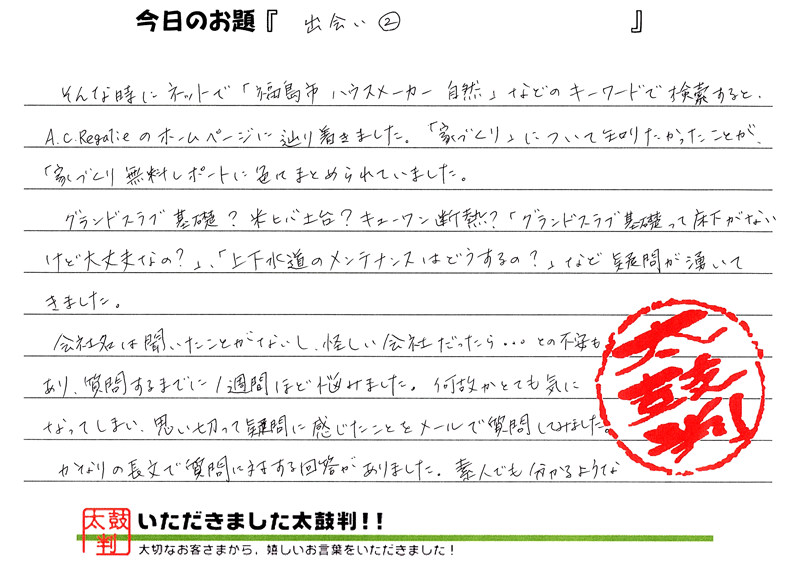 今日のお題『 出会い② 』
そんな時にネットで「福島市 ハウスメーカー 自然」などのキーワードで検索すると、
A.C.Regalieのホームページに辿り着きました。「家づくり」について知りたかったことが、
「家づくり無料レポートに全てまとめられていました。
グランドスラブ基礎?米ヒバ土台?キューワン断熱?「グランドスラブ基礎って床下がない
けど大丈夫なの?」、「上下水道のメンテナンスはどうするの?」など疑問が湧いて
きました。
会社名は聞いたことがないし、怪しい会社だったら…との不安も
あり、質問するまでに1週間ほど悩みました。何故かとても気に
なってしまい、思い切って疑問に感じたことをメールで質問してみました。
かなりの長文で質問に対する回答がありました。素人でも分かるような
太鼓判
太鼓判
いただきました太鼓判!!
大切なお客さまから、嬉しいお言葉をいただきました!